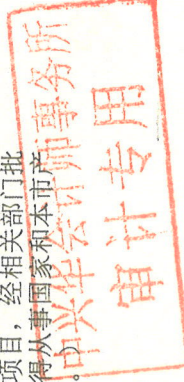 项目，经相关部门批
得从事国家和本市产
。）
中兴华会计师事务所
审计专用